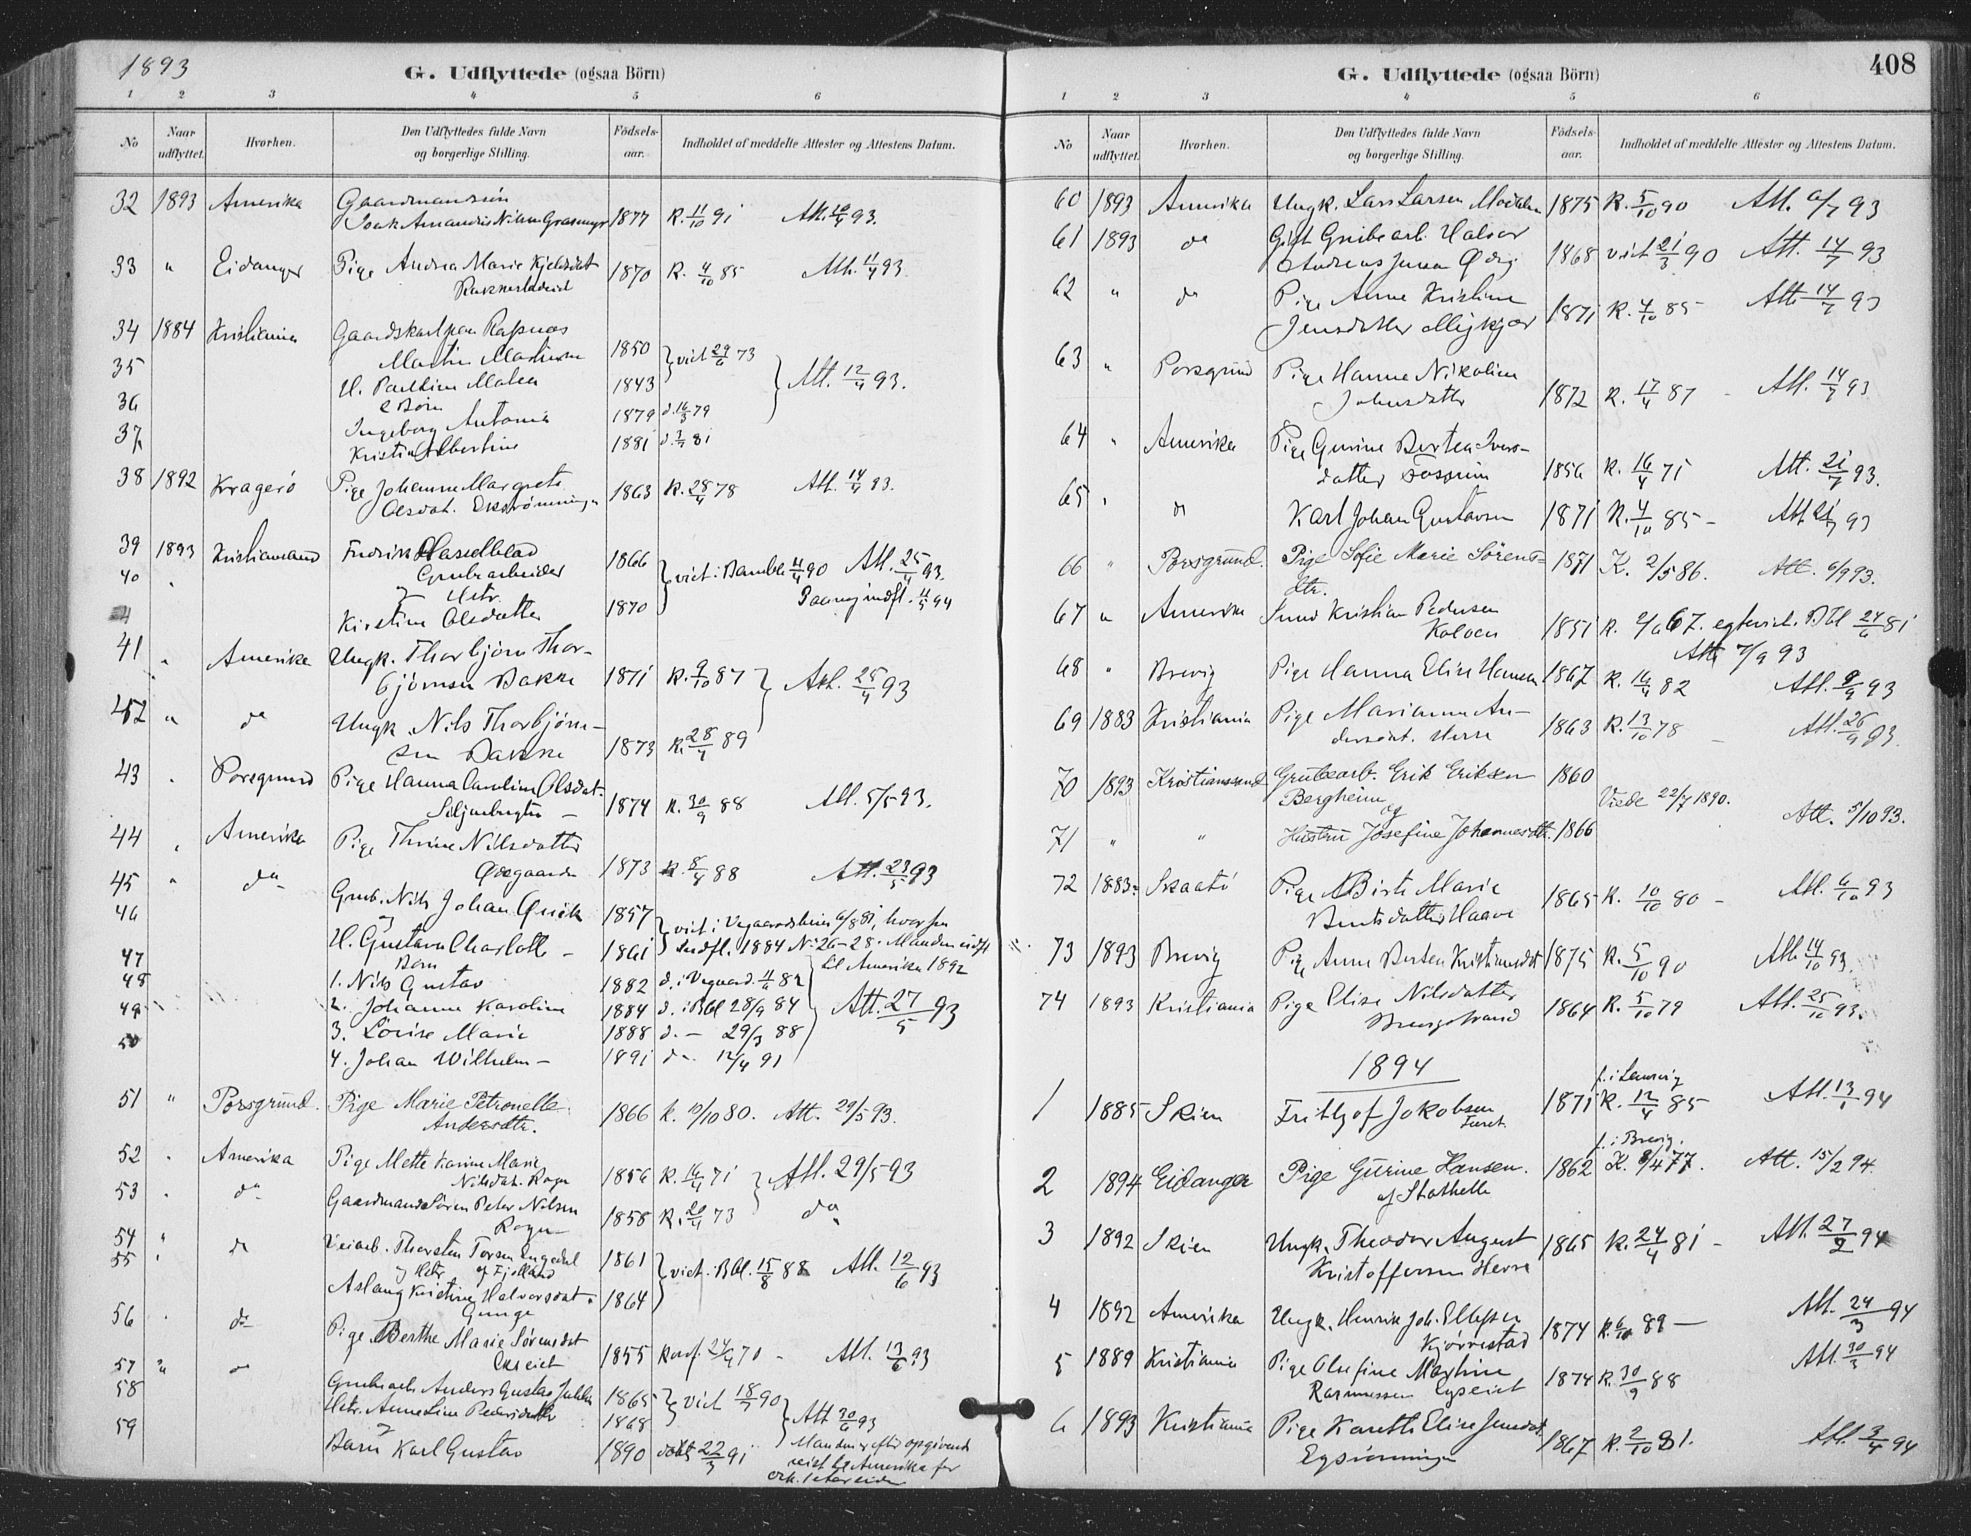 1893
G. Udflyttede (ogsaa Börn)
1 2 3 4 5 6
No
Naar udflyttet.
Hvorhen.
Den Udflyttedes fulde Navn og borgerlige Stilling.
Födsels-aar.
Indholdet af meddelte Attester og Attestens Datum.
32 1893 Amerika Gaardmandssön
Isak Amandus Nilsen Grasmyr 1877 K. 11/10 91
33 " Eidanger Pige Andrea Marie Kjeldsdat 1870 K. 4/10 85 Att. 11/4 93.
34 1884 Kristiania Gaardskarl paa
35 Martin 1850 } viet 29/6 73
H. Malea 1843 } Att. 12/4 93.
36 2 Börn
Ingeborg Antonia 1879 d. 16/3 79
37 Kristine Albertine 1881 d. 81
38 1892 Kragerö Pige Johanne Margrete
Olsdat. 1863 K. 28/4 78 Att. 14/4 93.
39 1893 Kristiansand Fredrik Hasselblad 1866 } viet i Bamble 90 Att. 25/4 93.
40 " Grubearbeider
Hstr. Paany indfl. 94
Kirstine Olsdatter 1870
41 " Amerika Ungk. Thorbjörn Thor-
björnsen Bakke 1871 K. 9/10 87 } Att. 25/4 93
42 " do Ungk. Nils Thorbjörn-
sen Bakke 1873 K. 28/4 89
43 " Porsgrund Pige Hanna Caroline Olsdat.
1874 K. 30/9 88 Att. 5/5 93.
44 " Amerika Pige Thrine Nilsdatter
Ödegaarden 1873 K. 8/4 88 Att. 23/5 93
45 " do Grub. Nils Johan 1857 } viet i Vegaardsheien 6/8 81, hvorfra
46 H. Gustava Charlotte 1861 } Indfl. 1884 No 26-28. Manden udfl
47 Börn til Amerika 1892
1. Nils Gustav 1882 d. i Vegaard. 82
48 2. Johanne Karoline 1884 d. i Bbl 28/9 84 } Att. 27/5 93
49 3. Lovise Marie 1888 d. – 29/3 88
50 4. Johan Wilhelm – 1891 do 12/4 91
51 " Porsgrund. Pige Marie Petronelle
Andersdtr. 1866 K. 10/10 80. Att. 29/5 93.
52 " Amerika Pige Mette Karine Marie
Nilsdat. Rogn 1856 K. 16/4 71 } Att. 29/5 93
53 " do Gaardmand Sören Peter Nilsen
Rogn 1858 K. 20/4 73 do
54 " do Veiarb. Thorsten Torsen
55 " og Hstr. af Fjotland 1861 } viet i Bbl. 15/8 88 Att. 12/6 93
Aslaug Kristine Halvorsdat. 1864
56 " do Pige Berthe Marie Sörensdat
1855 konf. 24/4 70 – Att. 13/6 93
57 " do Grubearb. Anders Gustav 1865 } viet 18/7 90
58 Hstr. Anne Line Pedersdatter 1868 } Att 20/6 93
59 Barn Karl Gustav 1890 döbt 22/3 91 Manden efter opgivende
reist til Amerika for
G. Udflyttede (ogsaa Börn)
408
1 2 3 4 5 6
No
Naar udflyttet.
Hvorhen.
Den Udflyttedes fulde Navn og borgerlige Stilling.
Födsels-aar.
Indholdet af meddelte Attester og Attestens Datum.
60 1893 Amerika Ungk. Lars Larsen 1875 K. 5/10 90 Att. 6/7 93
61 1893 do Gift Grubearb. Halvor
Andreas Jensen 1868 viet 21/3 90 Att. 14/7 93
62 " do Pige Anne Kristine
Jensdatter 1871 K. 4/10 85 Att. 14/7 93
63 " Porsgrund Pige Hanne Nikoline
Johnsdatter 1872 K. 17/4 87 – Att. 14/7 93
64 " Amerika Pige Gurine Bertea Ivers-
datter Fossum 1856 K. 16/4 71 Att. 21/7 93.
65 " do Karl Johan Gustavsen 1871 K. 4/10 85 – Att. 21/7 93
66 " Porsgrund. Pige Sofie Marie Sörens-
dtr. 1871 K. 2/5 86. Att. 6/9 93.
67 " Amerika Smed Kristian Pedersen
1851 K. 67. Bbl 24/6 81
Att. 7/9 93
68 " Brevig Pige Hanna Elise Hansen 1867 K. 16/4 82 Att. 8/9 93
69 1883 Kristiania Pige Marianne An-
dersdat. Herre 1863 K. 13/10 78 – Att. 26/9 93.
70 1893 Kristianssand Grubearb. Erik Eriksen 1860
Bergheim Viede 22/7 1890.
og Att. 5/10 93.
71 " " Hustru Josefine Johannesdtr. 1866
72 1883 Skaatö Pige Birte Marie
Bentsdatter Haave 1865 K. 10/10 80 – Att. 6/10 93
73 1893 Brevig Pige Anne Bertea Kristiansdat 1875 K. 5/10 90 Att. 14/10 93.
74 1893 Kristiania Pige Elise Nilsdatter
1864 K. 5/10 79 Att. 25/10 93.
1894
1 1885 Skien Frithjof Jokobsen 1871 K. 12/4 85 Att. 13/1 94
f. i Brevig.
2 1894 Eidanger Pige Gurine Hansen.
af Stathelle 1862 K. 8/4 77. Att. 15/2 94.
3 1892 Skien Ungk. Theodor August
Kristoffersen Herre 1865 K. 24/4 81 – Att. 27/2 94
4 1892 Amerika Ungk. Henrik Joh. Ellefsen
Kjörrestad 1874 K. 6/10 89 – Att. 24/3 94
5 1889 Kristiania Pige Olefine Martine
Rasmussen 1874 K. 30/9 88 Att. 30/3 94
6 1893 Kristiania Pige Elise Jensdat.
1867 K. 2/10 81. Att. 3/4 94